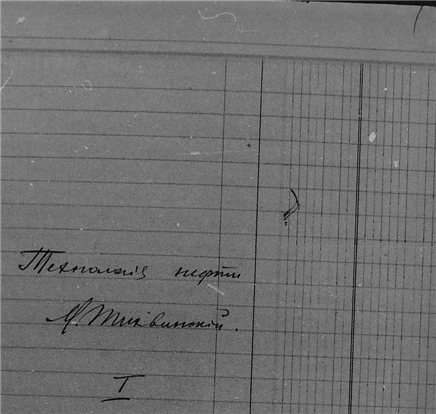 Технологія нефти
М. Тихвинскій.
I